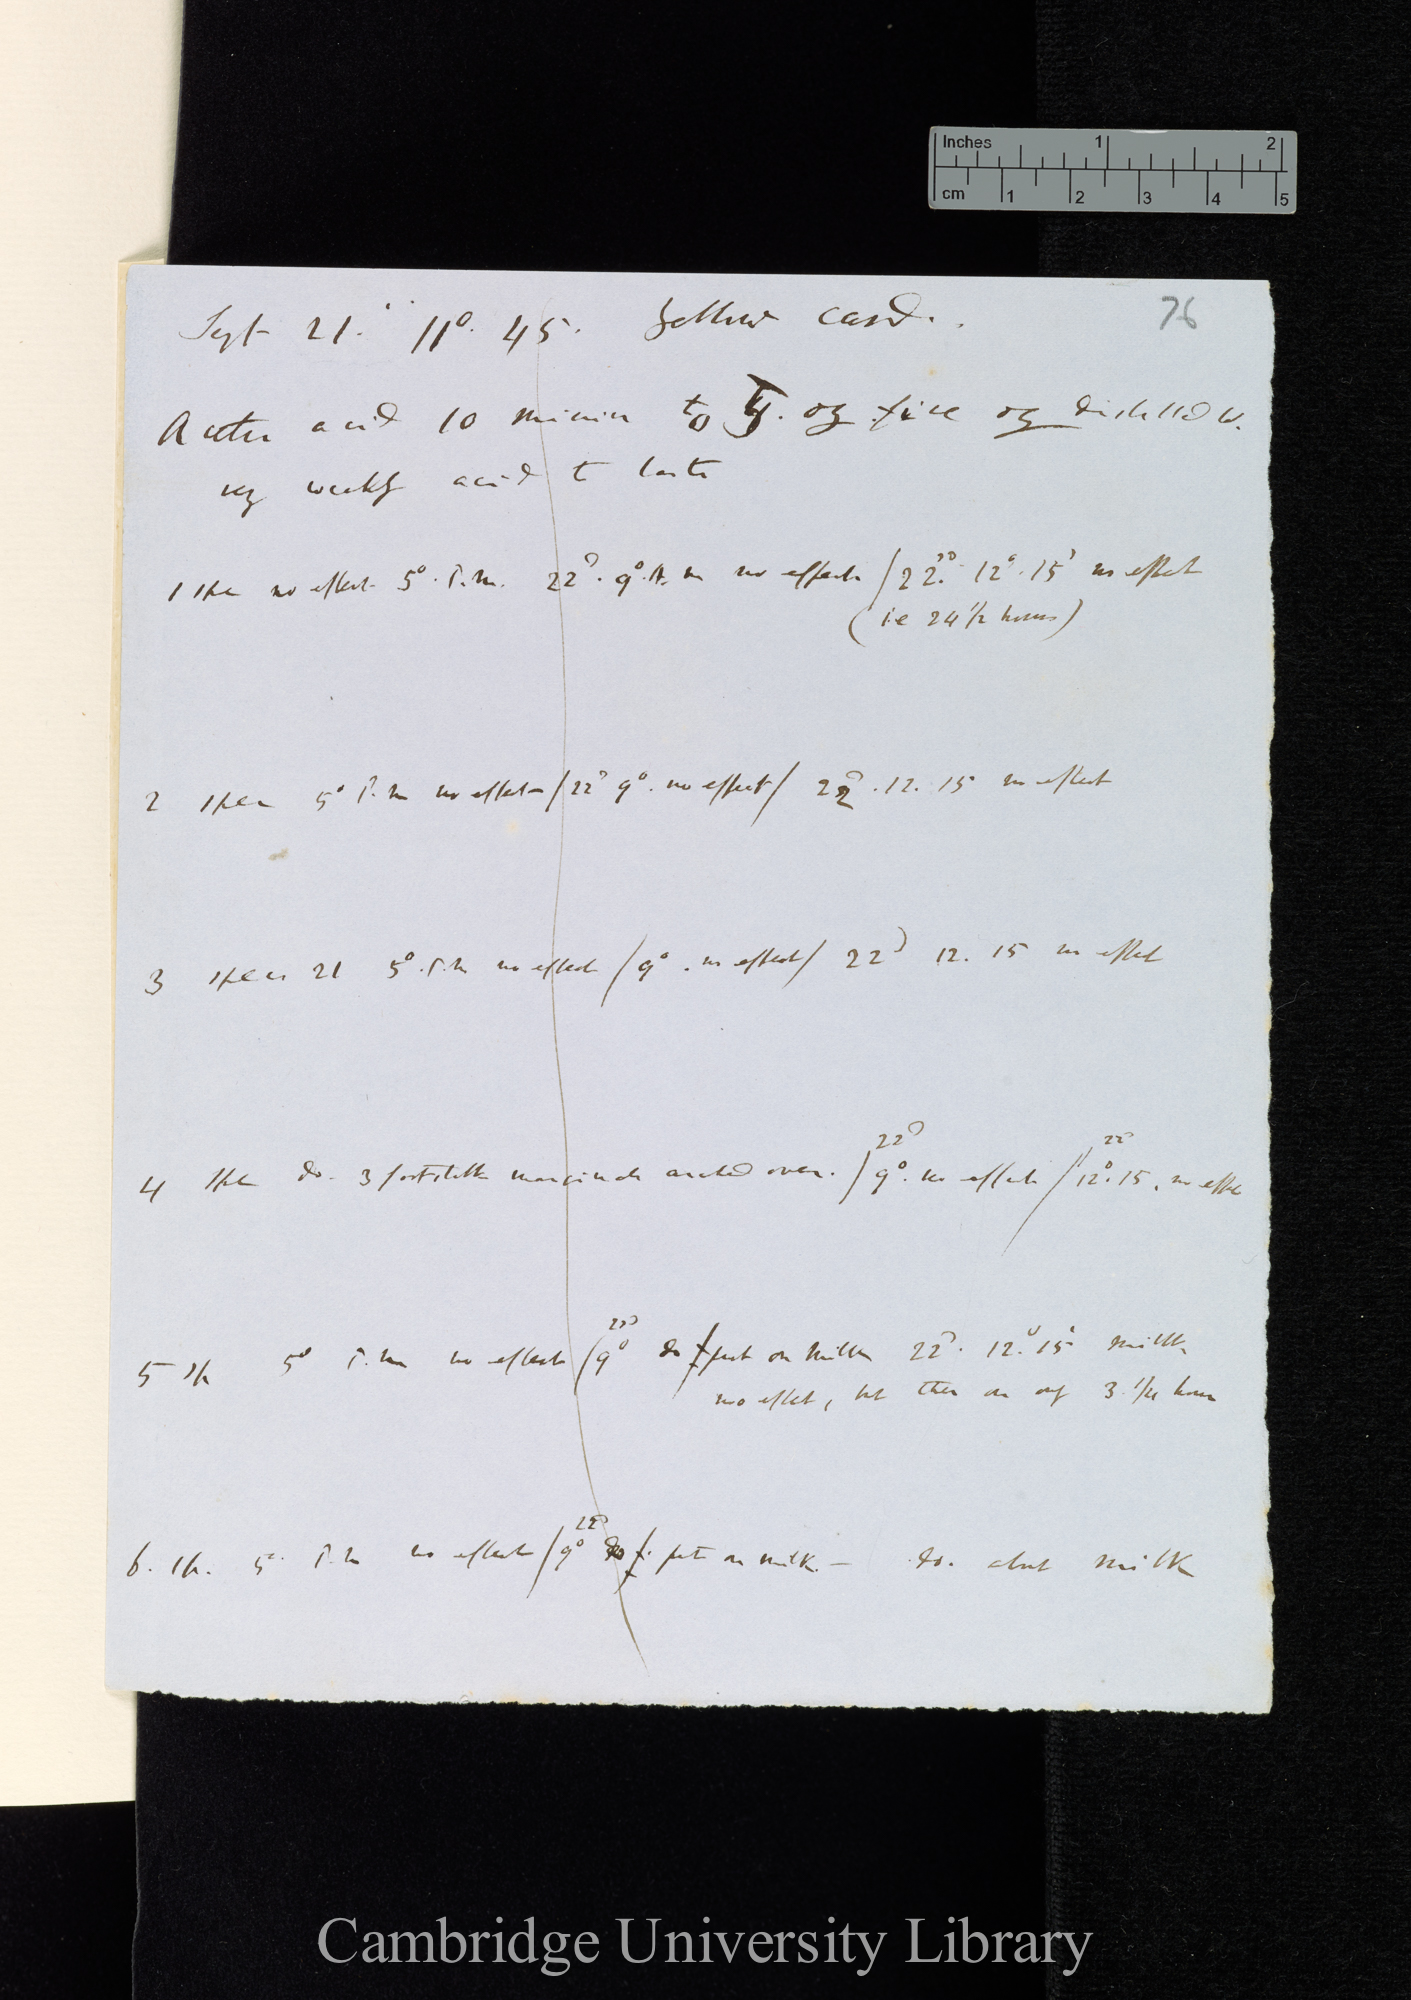 Inches 1 2
cm 1 2 3 4 5
Sept 21. 11°. 45. Yellow card. 76
Acetic acid 10 minims to oz five oz distilled W.
very weakly acid to taste
1 spec no effect 5°. P.m. 22d. 9°. A.m no effect / 22d. 12°. 15' no effect
(ie 24 1/2 hours)
2 specn 5° P.m no effect / 22d 9°. no effect / 22d. 12. 15 no effect
3 specn 21 5°. P.m no effect / 9°. no effect / 22d 12. 15 no effect
22d 22d
4 spec do. 3 marginals arched over. / 9°. no effect / 12°. 15. no effec
22d
5 sp 5° P.m no effect / 9° do / put on milk 22d. 12°. 15' milk
no effect, but then on only 3 1/4 hour
22d
6. sp. 5° P.m no effect / 9° do / put on milk. — do. about milk
Cambridge University Library